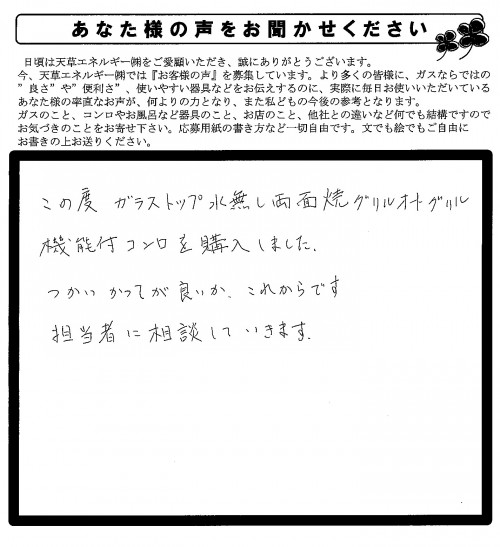 あなた様の声をお聞かせください
日頃は天草エネルギー㈱をご愛顧いただき、誠にありがとうございます。
今、天草エネルギー㈱では『お客様の声』を募集しています。より多くの皆様に、ガスならではの
”良さ”や”便利さ”、使いやすい器具などをお伝えするのに、実際に毎日お使いいただいている
あなた様の率直なお声が、何よりの力となり、また私どもの今後の参考となります。
ガスのこと、コンロやお風呂など器具のこと、お店のこと、他社との違いなど何でも結構ですので
お気づきのことをお寄せ下さい。応募用紙の書き方など一切自由です。文でも絵でもご自由に
お書きの上お送りください。
この度 ガラストップ水無し両面焼グリルオートグリル
機能付コンロを購入しました.
つかいかってが良いか.これからです
担当者に相談していきます.